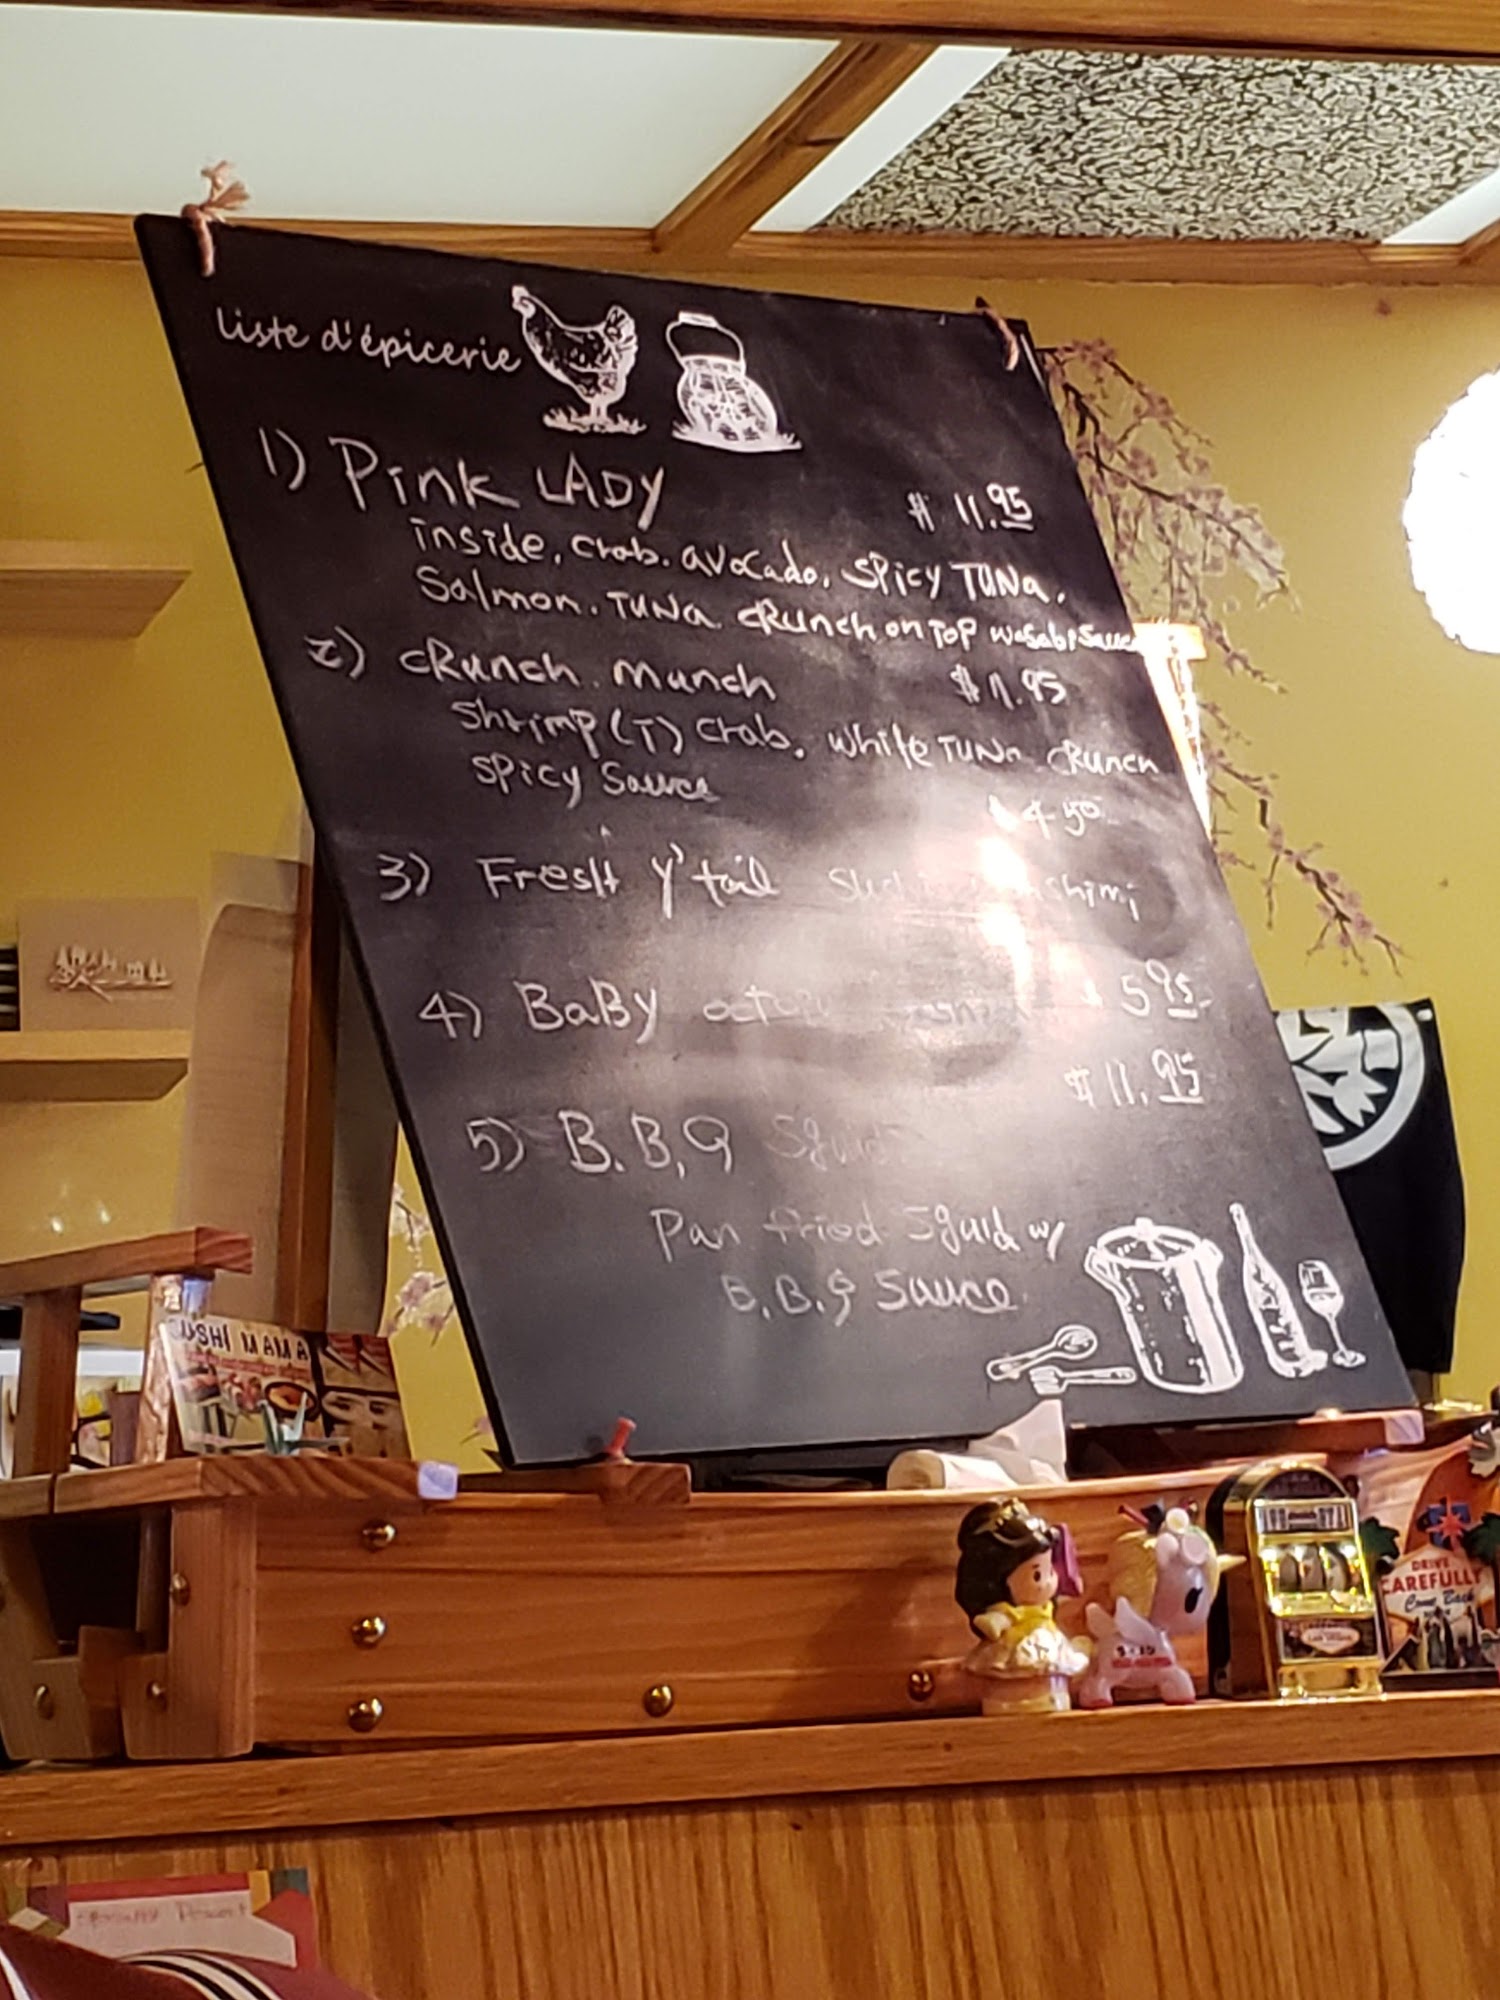 Liste d'épicerie
1) Pink LADY $ 11.95
inside, crab. avocado, SPicy TUNa.
Salmon. TUNa CRunch on TOP wasabi Sauce
2) CRunch Munch
Shrimp (T) Crab, White TUNa CRunch
SPicy Sauce
4 50
3) FresH Y'tail
4) BaBy 5 95
$ 11.95
5) B.B,Q Squid
Pan fried Squid w/
B.B.Q Sauce
SUSHI MAMA
DRIVE
CAREFULLY
Come Back